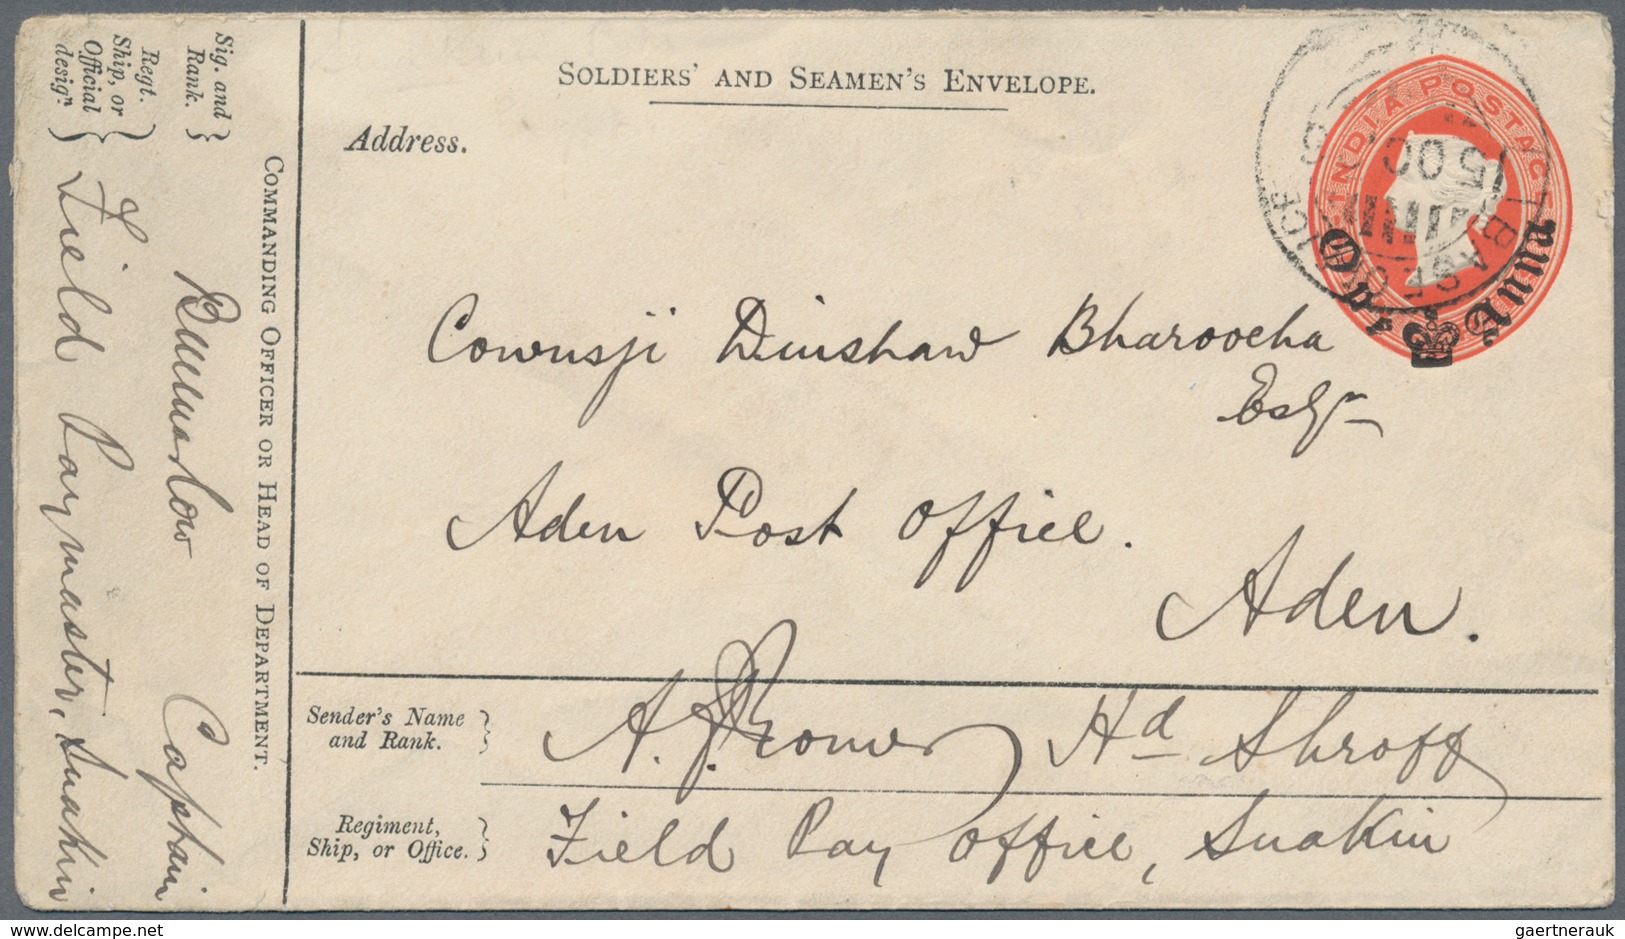 SOLDIERS' AND SEAMEN'S ENVELOPE.
Address.
INDIA POSTAGE
One Anna
BASE OFFICE
5 OC
Cowusji Dinshaw Bharoocha
Esqr
Aden Post Office.
Aden.
Sender's Name
and Rank.
A. J. Hd Shroff
Regiment,
Ship, or Office.
Field Pay Office, Suakin
COMMANDING OFFICER OR HEAD OF DEPARTMENT.
Sig. and
Rank.
Captain
Regt.
Ship, or
Official
desigr.
Field Paymaster, Suakin
hip.com
gaertnerauk